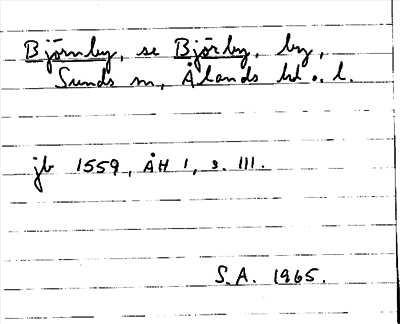 Björnby, se Björby, by,
Sunds sn, Ålands hd o. l.
jb 1559, ÅH 1, s. 111.
S.A. 1965.